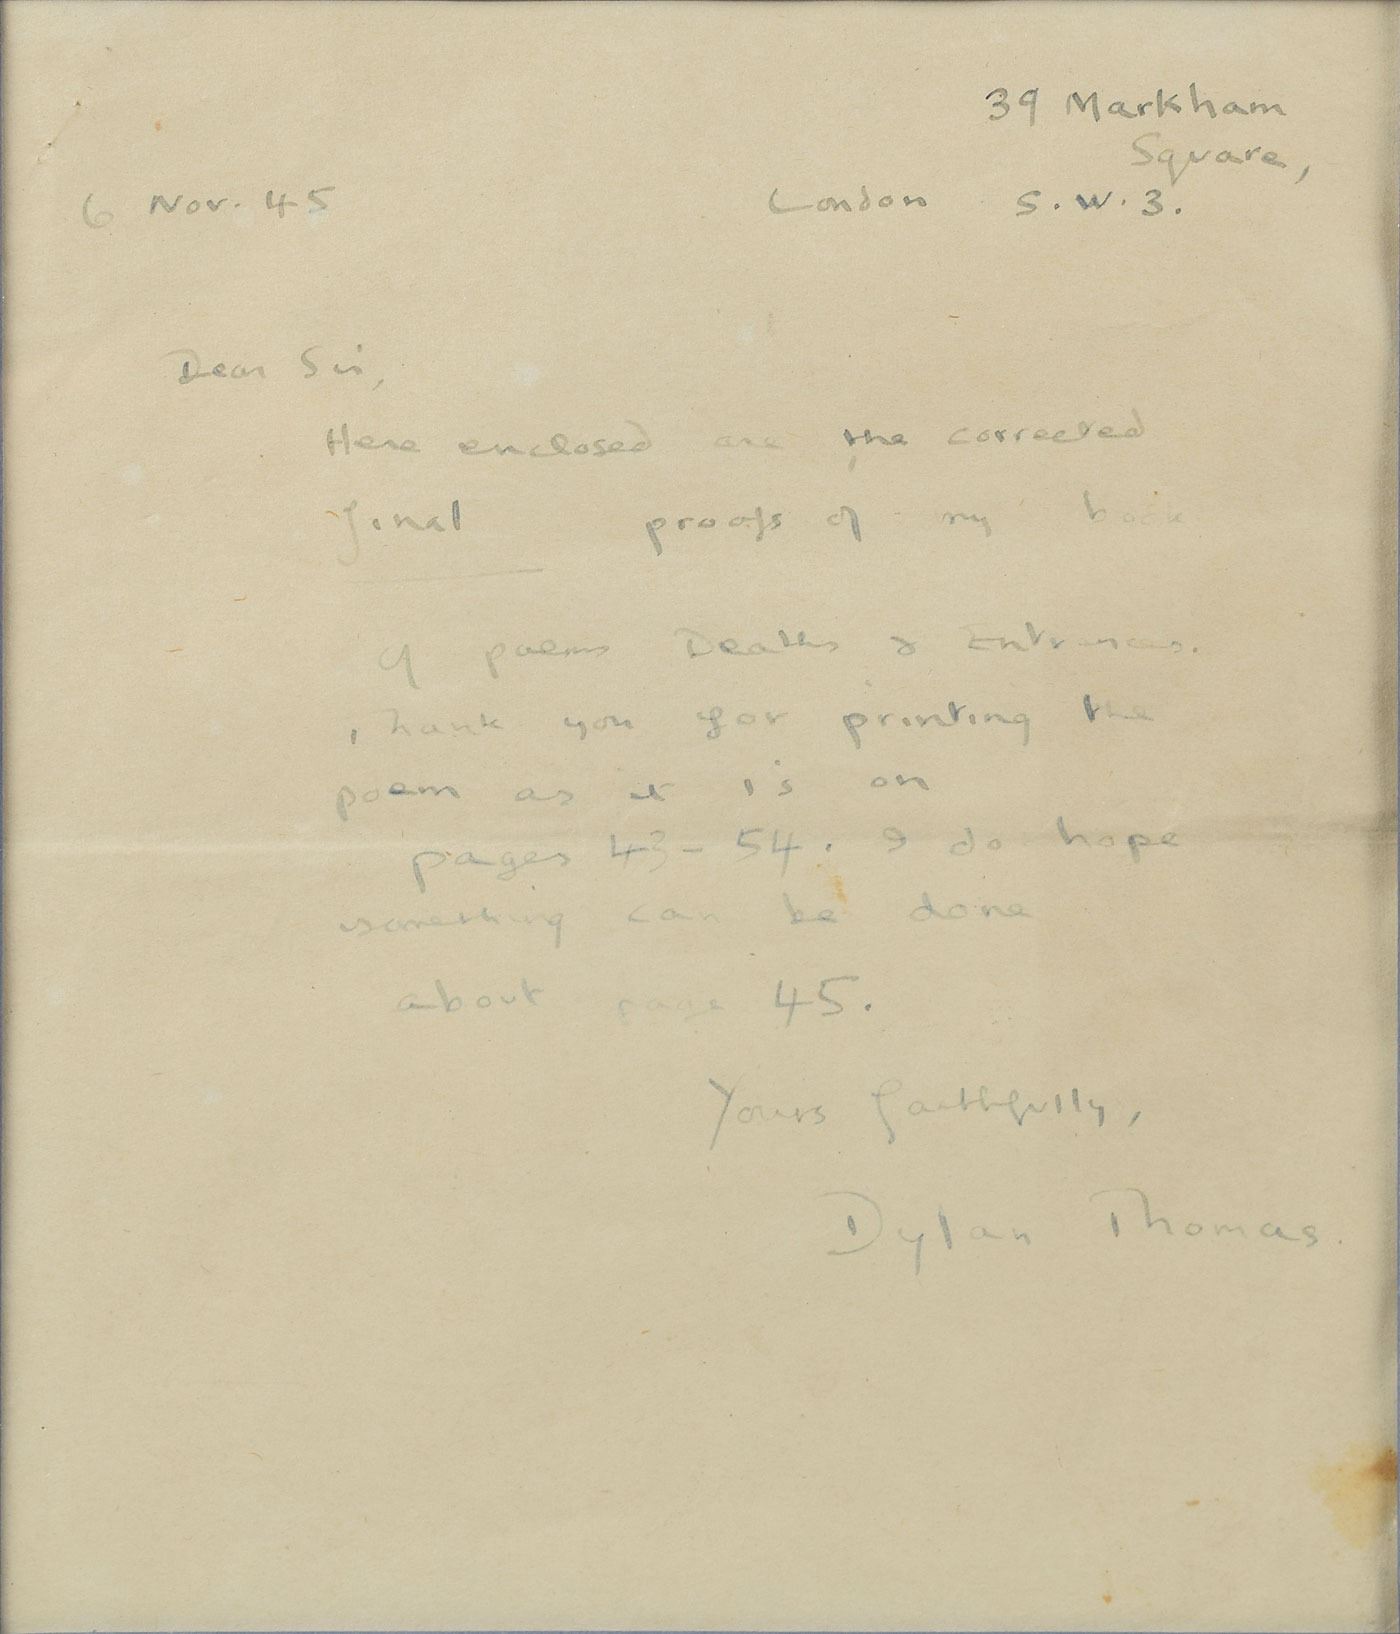 39 Markham
Square,
6 Nov. 45 London S.W.3.
Dear Sir,
Here enclosed are the corrected
final proofs of my book
of poems Deaths & Entrances.
Thank you for printing the
poem as it is on
pages 43-54. I do hope
something can be done
about page 45.
Yours faithfully,
Dylan Thomas.